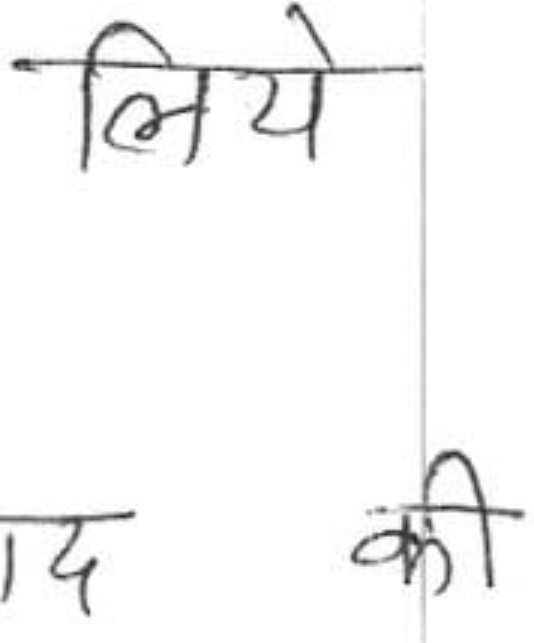 लिये
ाद की